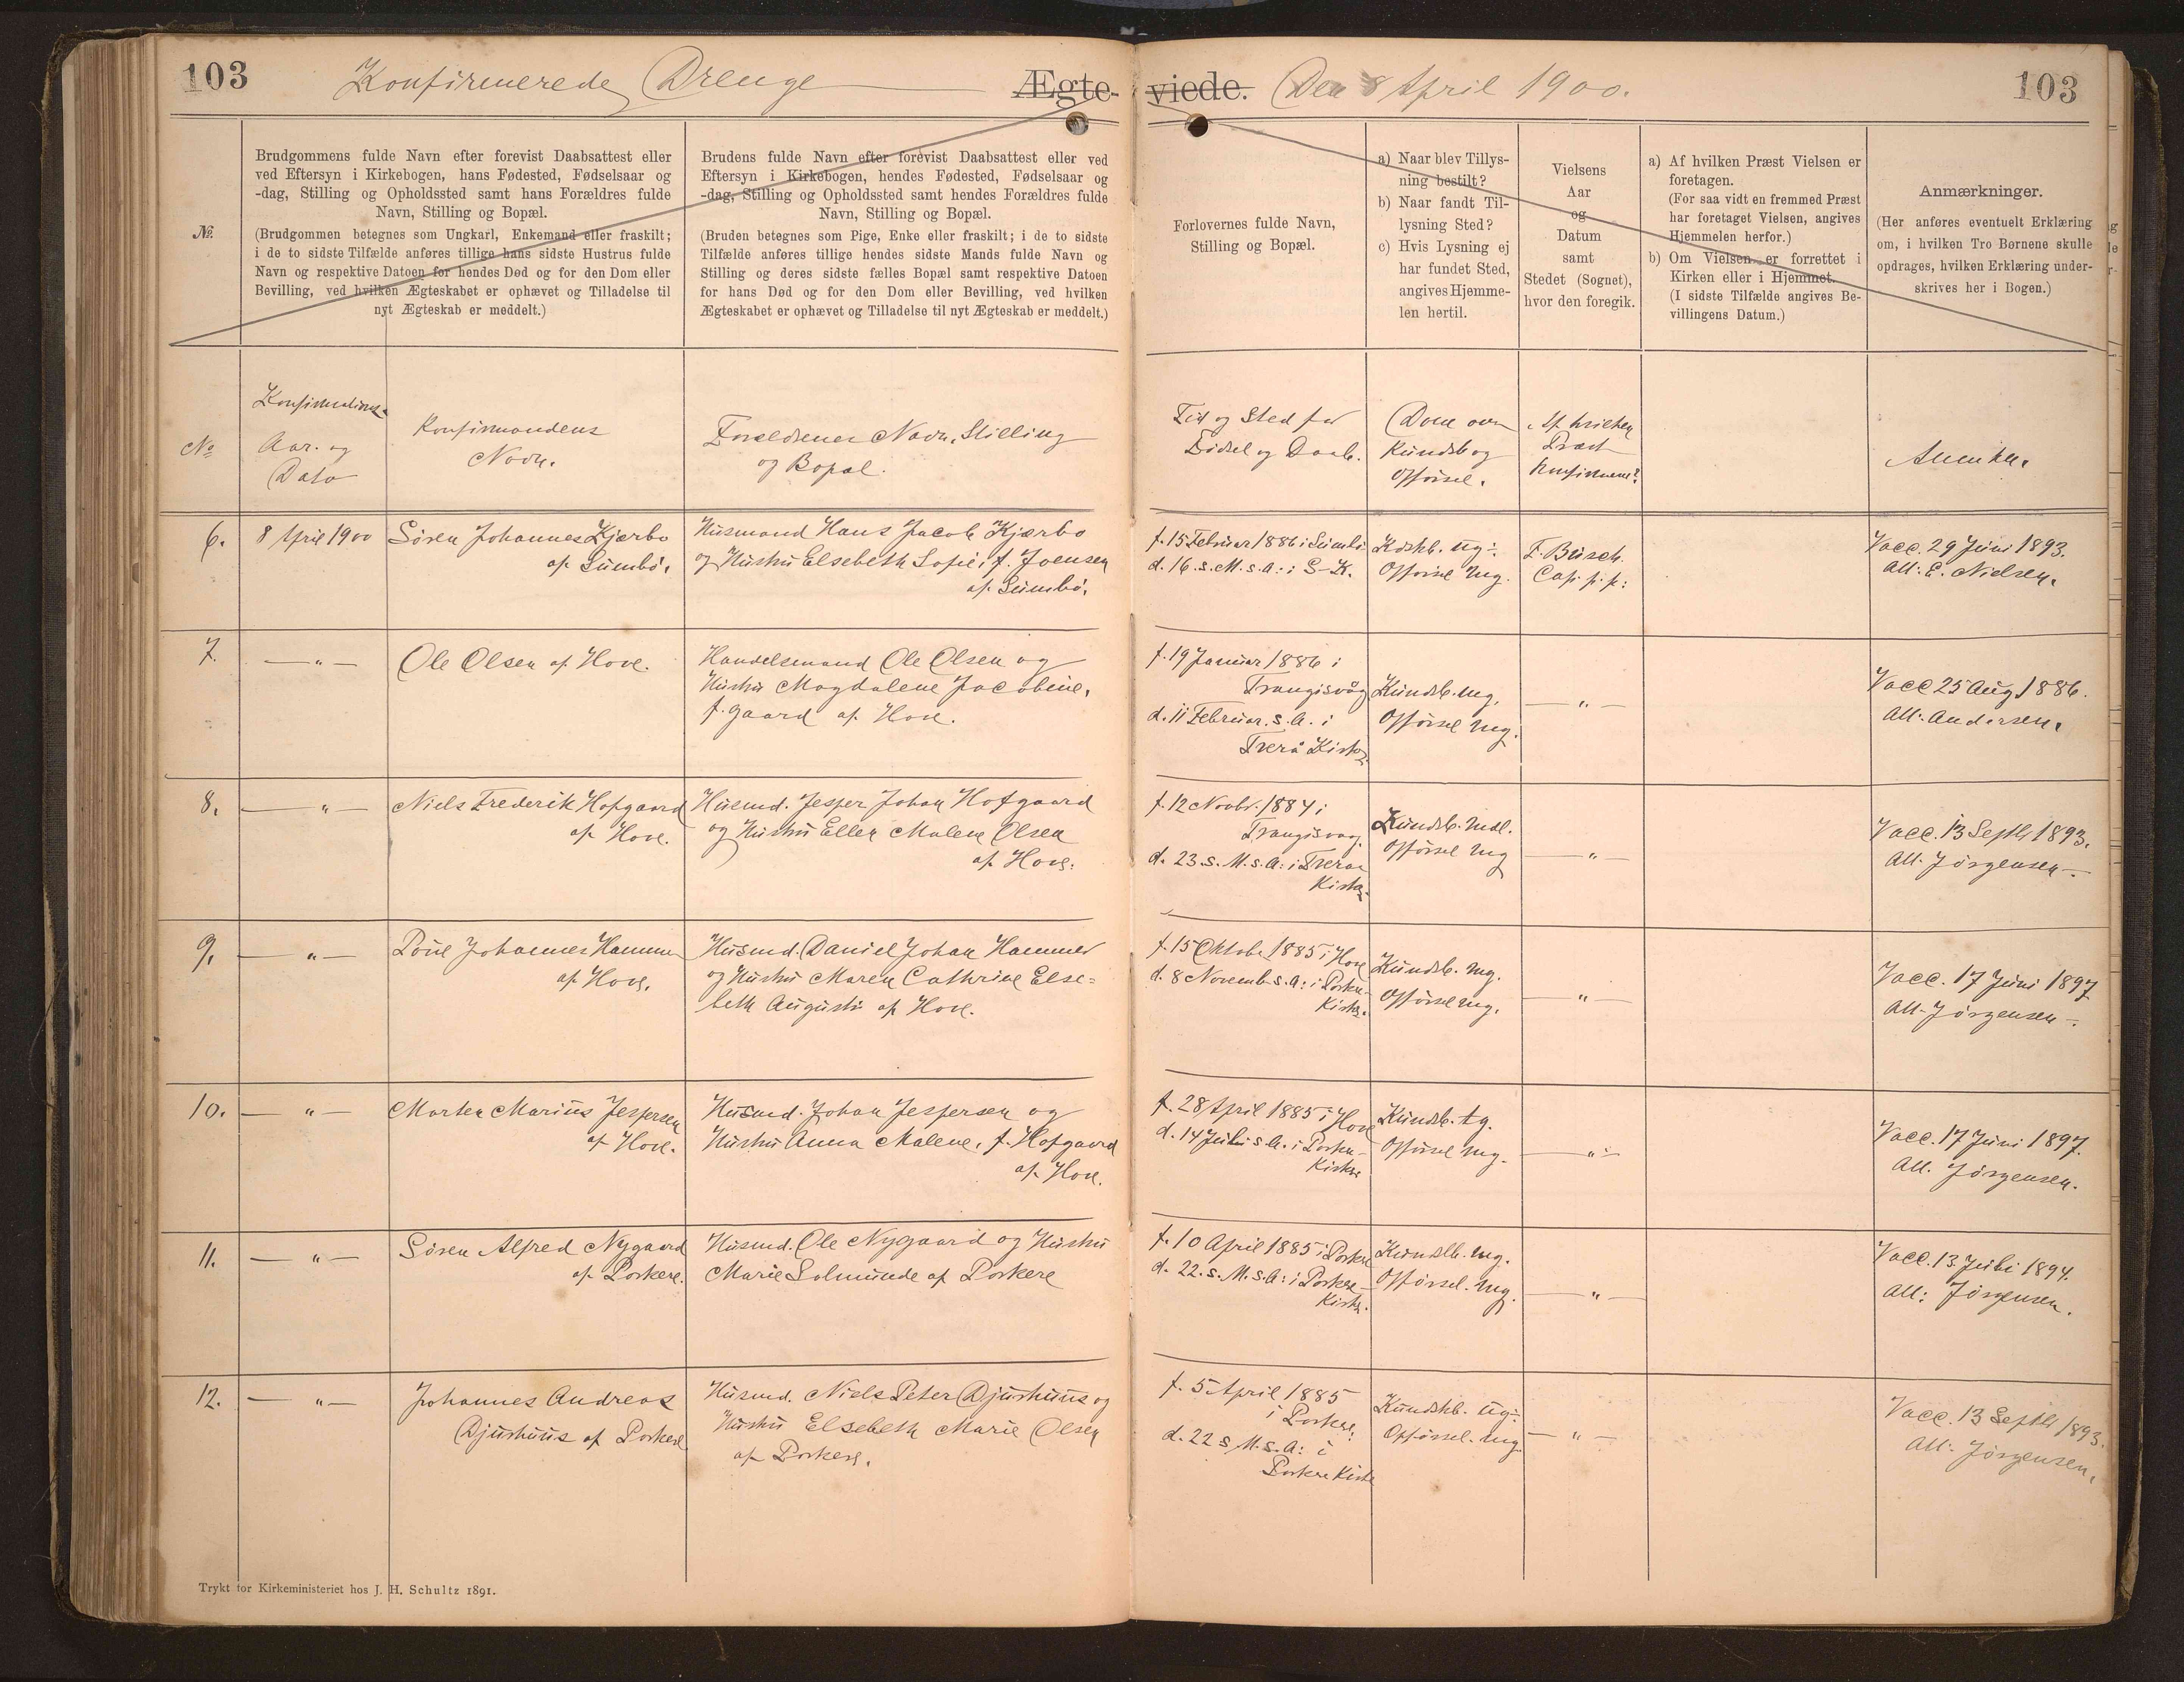 103
Konfirmerede Drenge
Ægte-
viede.
Den 8 April 1900.
103
№.
Brudgommens fulde Navn efter forevist Daabsattest eller
ved Eftersyn i Kirkebogen, hans Fødested, Fødselsaar og
-dag, Stilling og Opholdssted samt hans Forældres fulde
Navn, Stilling og Bopæl.
(Brudgommen betegnes som Ungkarl, Enkemand eller fraskilt;
i de to sidste Tilfælde anføres tillige hans sidste Hustrus fulde
Navn og respektive Datoen for hendes Død og for den Dom eller
Bevilling, ved hvilken Ægteskabet er ophævet og Tilladelse til
nyt Ægteskab er meddelt.)
Brudens fulde Navn efter forevist Daabsattest eller ved
Eftersyn i Kirkebogen, hendes Fødested, Fødselsaar og
-dag, Stilling og Opholdssted samt hendes Forældres fulde
Navn, Stilling og Bopæl.
(Bruden betegnes som Pige, Enke eller fraskilt; i de to sidste
Tilfælde anføres tillige hendes sidste Mands fulde Navn og
Stilling og deres sidste fælles Bopæl samt respektive Datoen
for hans Død og for den Dom eller Bevilling, ved hvilken
Ægteskabet er ophævet og Tilladelse til nyt Ægteskab er meddelt.)
Forlovernes fulde Navn,
Stilling og Bopæl.
a) Naar blev Tillys-
ning bestilt?
b) Naar fandt Til-
lysning Sted?
c) Hvis Lysning ej
har fundet Sted,
angives Hjemme-
len hertil.
Vielsens
Aar
og
Datum
samt
Stedet (Sognet),
hvor den foregik.
a) Af hvilken Præst Vielsen er
foretagen.
(For saa vidt en fremmed Præst
har foretaget Vielsen, angives
Hjemmelen herfor.)
b) Om Vielsen er forrettet i
Kirken eller i Hjemmet.
(I sidste Tilfælde angives Be-
villingens Datum.)
Anmærkninger.
(Her anføres eventuelt Erklæring
om, i hvilken Tro Børnene skulle
opdrages, hvilken Erklæring under-
skrives her i Bogen.)
No
Konfirmations-
Aar. og
Dato
Konfirmandens
Navn.
Forældrenes Navn, Stilling
og Bopæl.
Tid og Sted for
Fødsel og Daab.
Dom over
Kundsk og
Opførsel.
Af hvilken
Præst
konfirmeret?
Anmkn.
6.
8 April 1900
Søren Johannes Kjærbo
af Sumbø.
Husmand Hans Jacob Kjærbo
og Hustru Elsebeth Sofie f. Joensen
af Sumbø.
f. 15 Februar 1886 i Sumbø
d. 16. s. M. s. A: i S-K.
Kdskb. ug÷.
Opførsel mg.
F. Busch
Cap. p. p:
Vacc. 29 Juni 1893.
Att: E. Nielsen.
7.
— " —
Ole Olsen af Hove.
Handelsmand Ole Olsen og
Hustru Magdalene Jacobine,
f. Gaard af Hove.
f. 19 Januar 1886 i
Trangisvåg
d. 11 Februar. s. A. i
Tverå Kirke
Kundsk. mg.
Opførsel mg.
— " —
Vacc 25 Aug 1886.
Att: Andersen.
8.
— " —
Niels Frederik Hofgaard
af Hove.
Husmd. Jesper Johan Hofgaard
og Hustru Ellen Malene Olsen
af Hove.
f. 12 Novbr. 1884 i
Trangisvaag.
d. 23. s. M. s. A: i Tveraa
Kirke.
Kundsk. mdl.
Opførsel mg
— " —
Vacc. 13 Septb 1893.
Att. Jörgensen
9.
— " —
Poul Johannes Hammer
af Hove.
Husmd. Daniel Johan Hammer
og Hustru Maren Cathrine Else=
beth Augusti af Hove.
f. 15 Oktober 1885 i Hove
d. 8 Novemb. s. A: i Porkere-
Kirke.
Kundsk. mg.
Opførsel mg.
— " —
Vacc. 17 Juni 1897
Att- Jörgensen
10.
— " —
Morten Marius Jespersen
af Hove.
Husmd. Johan Jespersen og
Hustru Anna Malene, f. Hofgaard
af Hove.
f. 28 April 1885 i Hove
d. 14 Juli s A. i Porkere-
Kirke
Kundsk. tg.
Opførsel mg.
— " —
Vacc. 17 Juni 1897.
Att. Jörgensen.
11.
— " —
Søren Alfred Nygaard
af Porkere.
Husmd. Ole Nygaard og Hustru
Marie Solmunde af Porkere
f. 10 April 1885 i Porkere
d. 22. s. M. s. A: i Porkere-
Kirke.
Kundsk. mg.
Opførsel. mg.
— " —
Vacc. 13 Juli 1894.
Att: Jörgensen.
12.
— " —
Johannes Andreas
Djurhuus af Porkere
Husmd. Niels Peter Djurhuus og
Hustru Elsebeth Marie Olsen
af Porkere.
f. 5 April 1885
i Porkere.
d. 22 s M. s. A: i
Porkere Kirke
Kundskb. ug÷.
Opførsel. mg
— " —
Vacc. 13 Septb 1893.
Att: Jörgensen.
Trykt for Kirkeministeriet hos J. H. Schultz 1891.